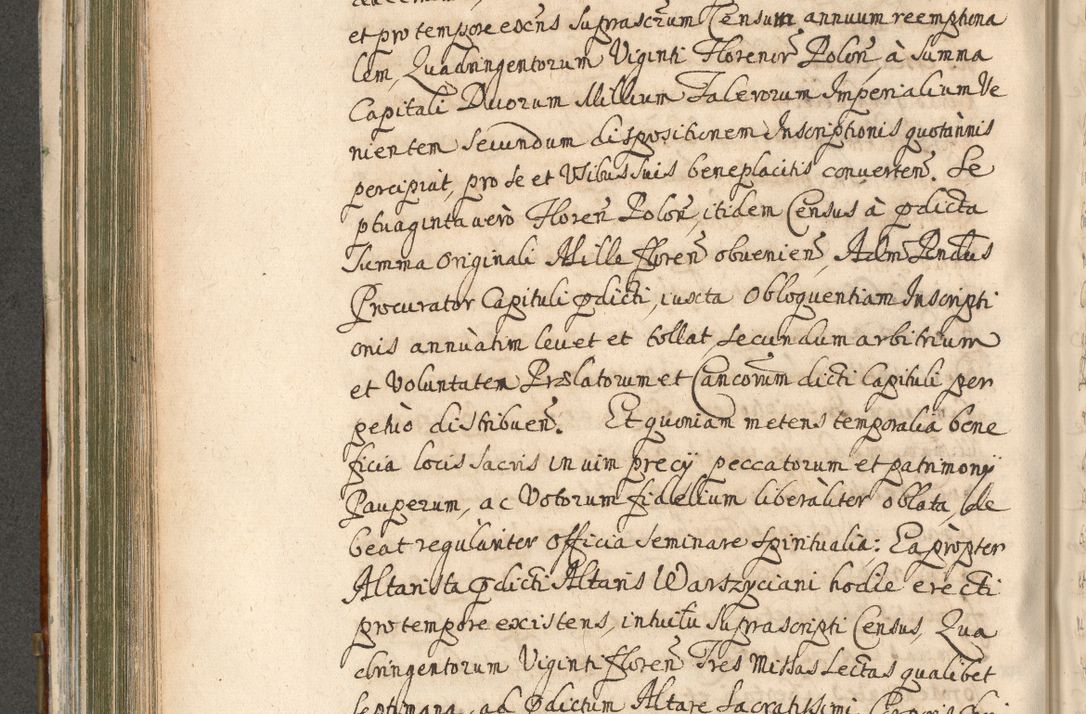 et pro tempore exceñs suprascrũm Censum annuum reemptiona
lem, Quadringentorum Viginti Florenor̃ Poloñ, à Summa
Capitali Duorum Millium Talerorum Imperialium Ve
nientem secundum dispositionem Inscriptionis quotannis
percipiat, pro se et Usibus suis beneplacitis converteñ. Se
ptuaginta verò Floreñ Poloñ, itidem Census à pdicta
Summa Originali Mille floreñ obvenieñ, Adm Rñdus
Procurator Capituli pdicti, iuxta Obloquentiam Inscripti
onis annuàtim levet et tollat, secundum arbitrium
et Voluntatem Prælatorum et Canconum dicti Capituli per
petuò distribueñ. Et quoniam metens temporalia bene
ficia locis sacris in vim precÿ peccatorum et patrimonÿ
Pauperum, ac Votorum fidelium liberàliter oblata, de
beat regulariter Officia seminare spiritualia: Eapròpter
Altarista pdicti Altaris Warszyciani hodie erecti
pro tempore existens, intuitu suprascripti Census, Qua
dringentorum Viginti floreñ Tres Missas Lectas qualibet
septimana, ad pdictum Altare Sacratissimi